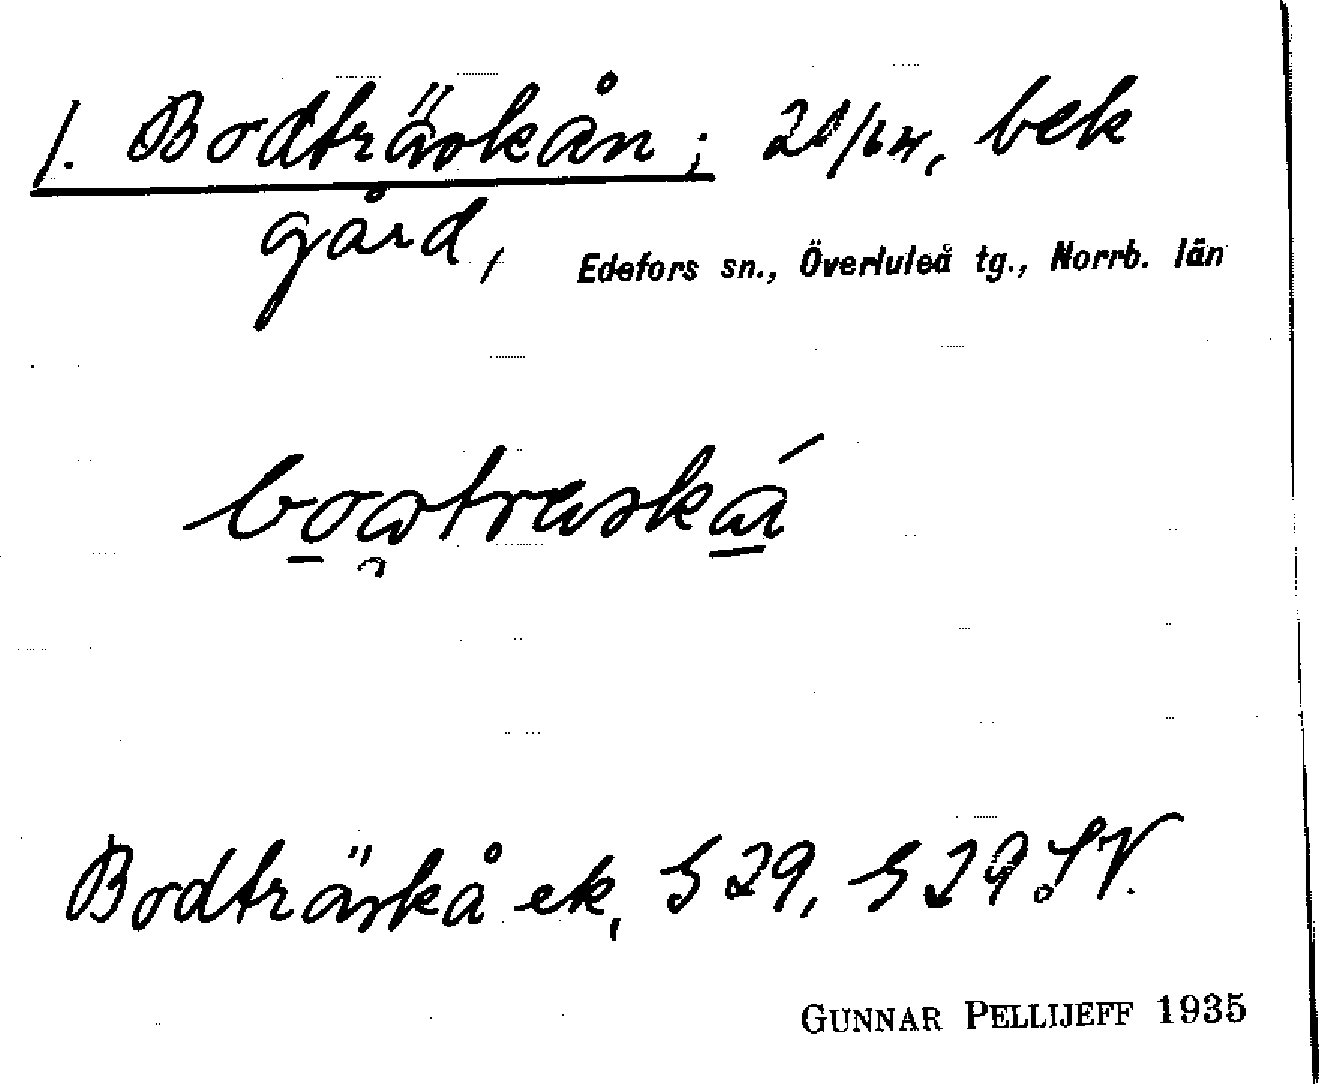 1. Bodträskån; 21/64, bek
gård,
Edefors sn., Överluleå tg., Norrb. län
Bodträskå ek, S 29, S 29 SV.
GUNNAR PELLIJEFF 1935